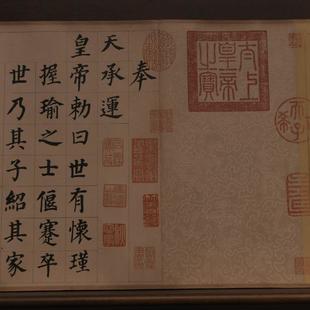 奉
天承運
皇帝勅曰世有懷瑾
握瑜之士偃蹇卒
世乃其子紹其家
太上皇帝之寶